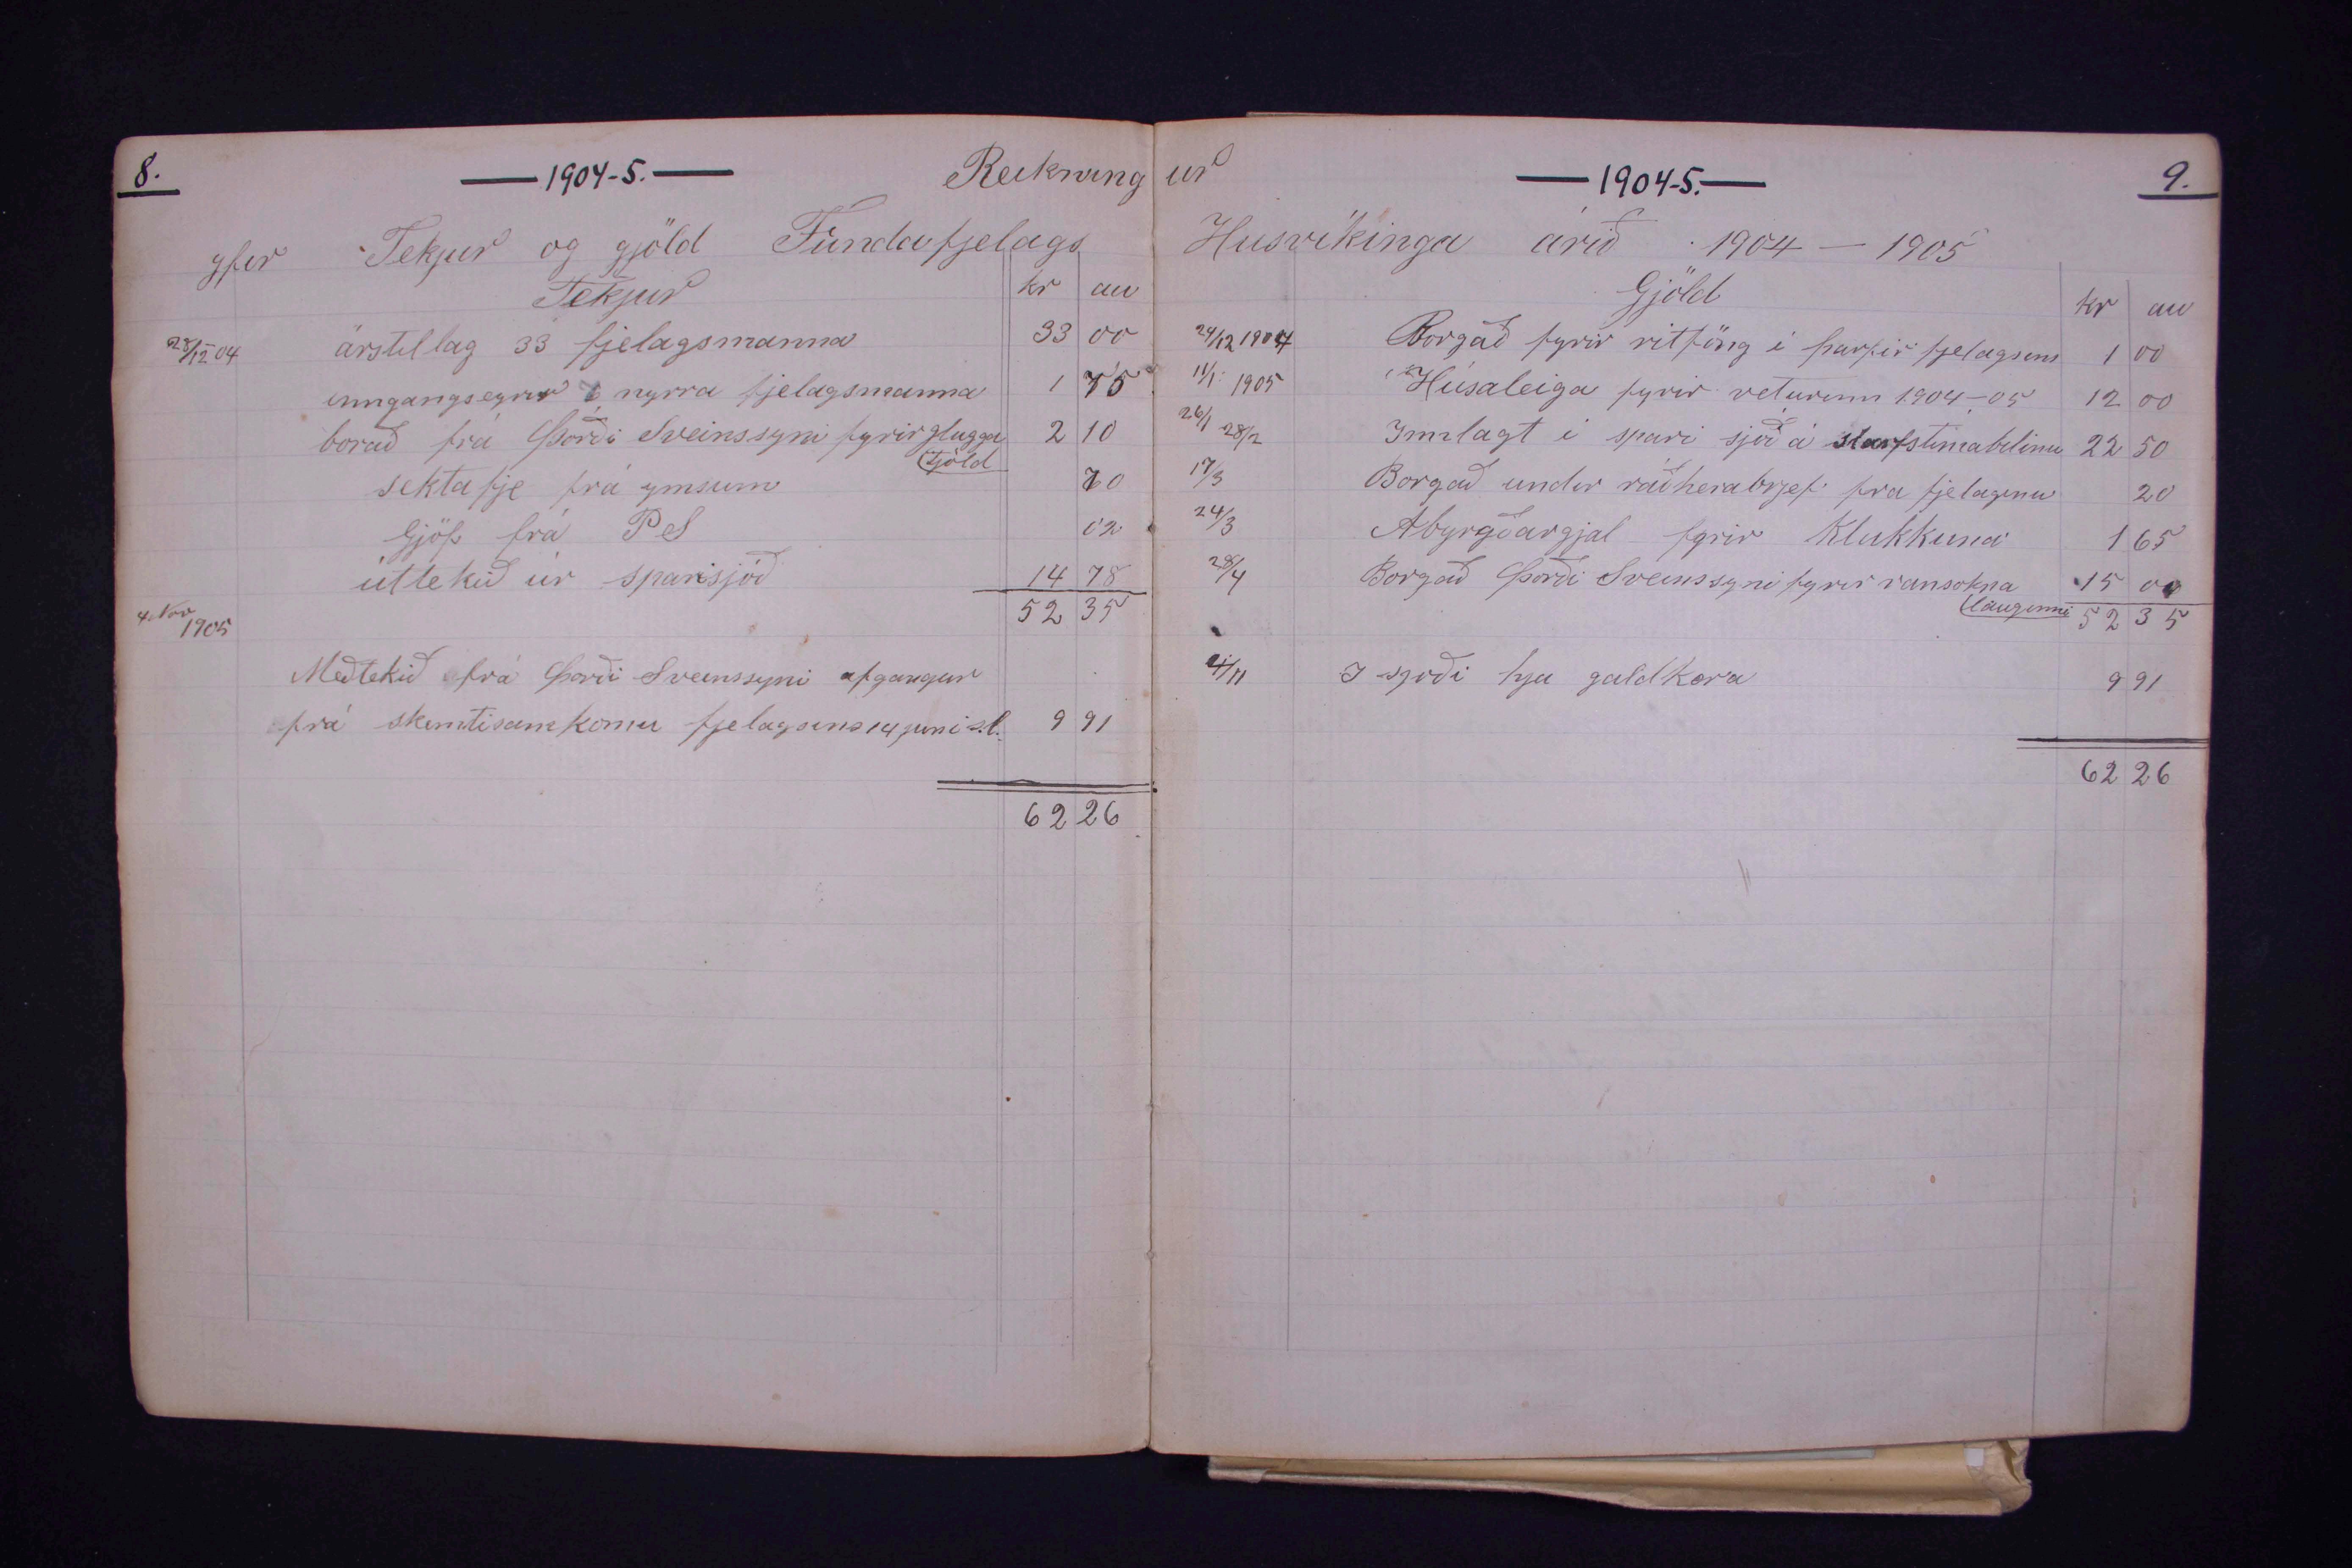 8.
— 1904-5. —
Reikning
yfir Tekjur og gjöld Fundafjelags
Tekjur kr au
28/12 04 árstillag 33 fjelagsmanna 33 00
inngangseyrir 7 nyrra fjelagsmanna 1 75
borað frá Þorði Sveinssyni fyrir glugga 2 10
tjöld
sektafje frá ymsum 70
Gjöf frá PS 02
úttekið úr sparisjóð 14 78
4 Nov 1905 52 35
Meðtekið frá Þorði Sveinssyni afgangur
frá skemtisamkomu fjelagsins 14 juni s.l. 9 91
62 26
ur
— 1904-5. —
9.
Husvikinga árið 1904 — 1905
Gjöld kr au
24/12 1904 Borgað fyrir ritföng i þarfir fjelagsins 1 00
11/1 1905 Húsaleiga fyrir veturinn 1904-05 12 00
26/1 28/2 Innlagt i spari sjóð á starfstimabilinu 22 50
17/3 Borgað undir ráðherabrjef fra fjelaginu 20
24/3 Abyrgðargjal fyrir Klukkuna 1 65
28/4 Borgað Þorði Sveinssyni fyrir ransokna 15 00
lauginni 52 35
4/11 I sjoði hja galdkera 9 91
62 26